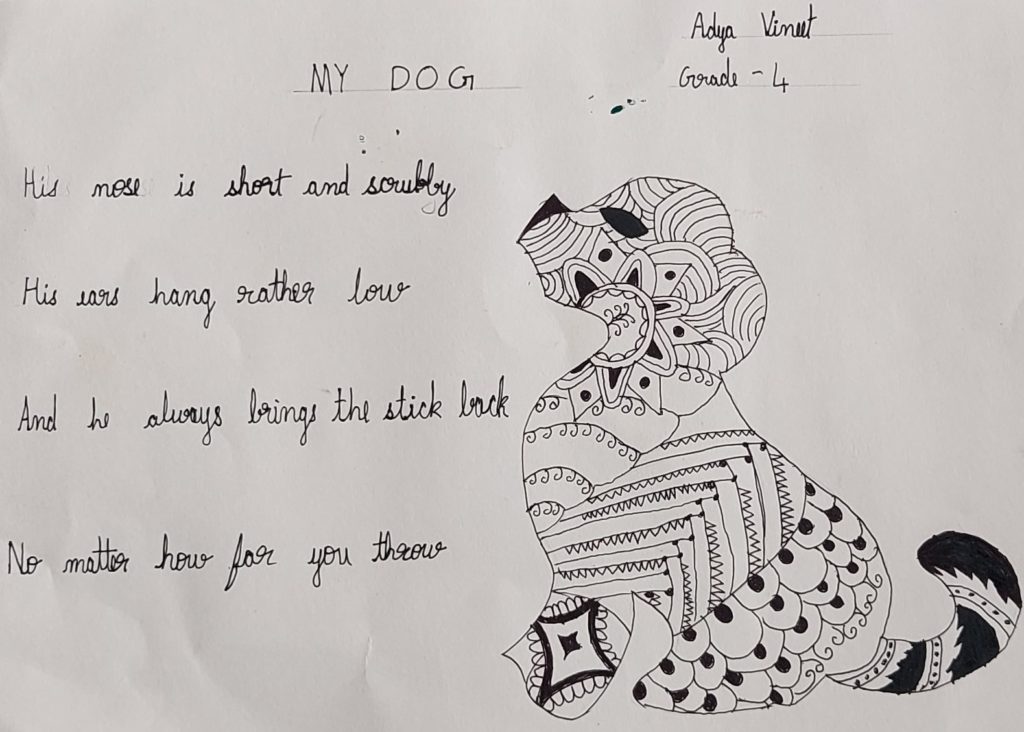 Adya Vineet
Grade - 4
MY DOG
His nose is short and scrubby
His ears hang rather low
And he always brings the stick back
No matter how far you throw